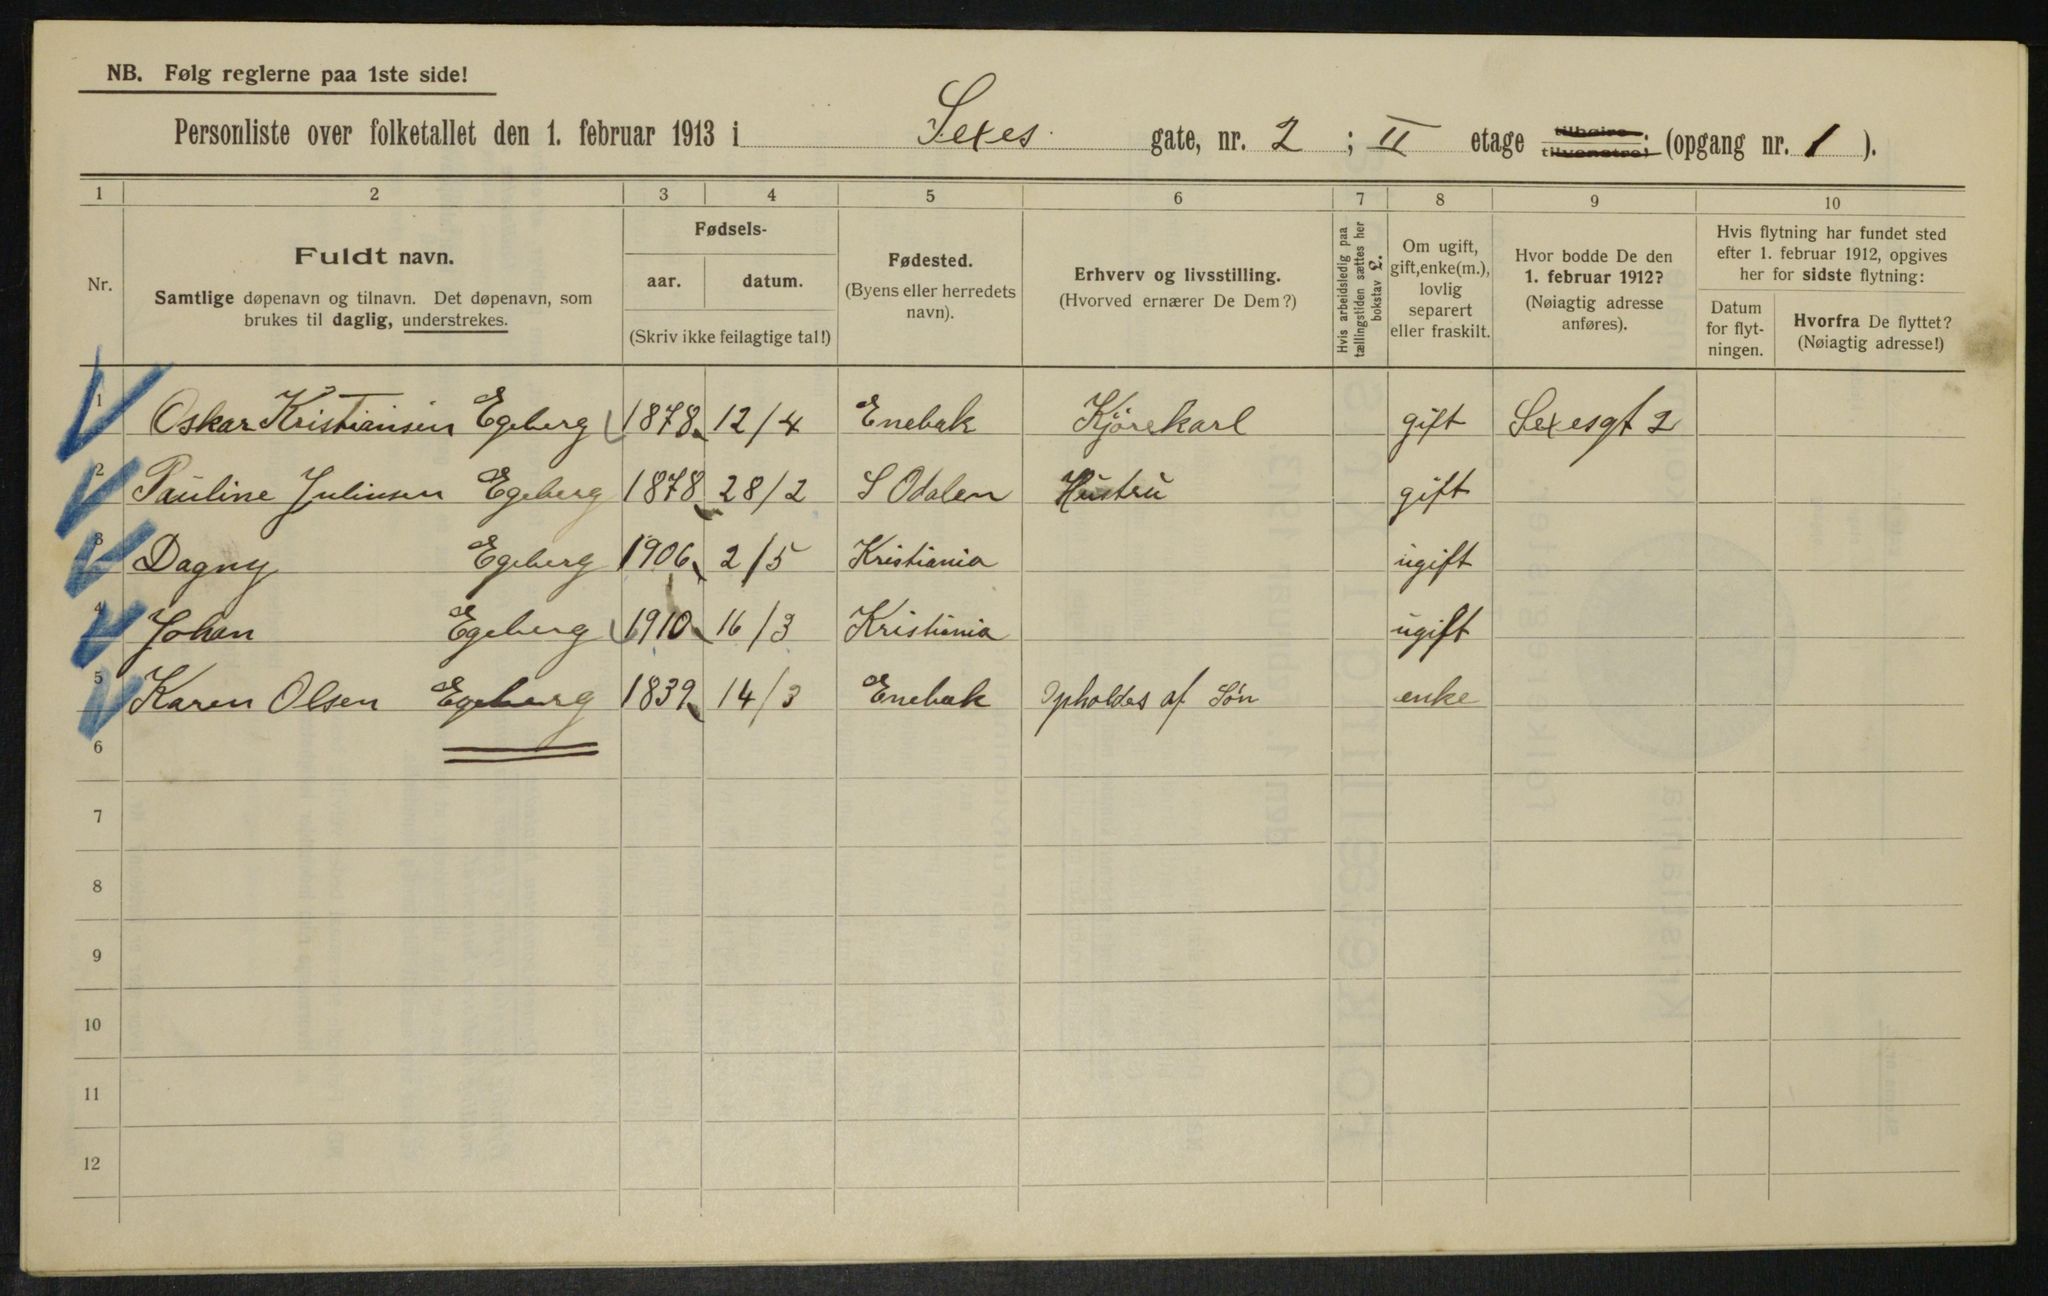 NB. Følg reglerne paa 1ste side!
Personliste over folketallet den 1. februar 1913 i Sexes gate, nr. 2 ; II etage tilhøire tilvenstre! ; (opgang nr. 1 ).
1 2 3 4 5 6 7 8 9 10
Nr.
Fuldt navn.
Samtlige døpenavn og tilnavn. Det døpenavn, som
brukes til daglig, understrekes.
Fødsels-
aar. datum.
(Skriv ikke feilagtige tal!)
Fødested.
(Byens eller herredets
navn).
Erhverv og livsstilling.
(Hvorved ernærer De Dem?)
Hvis arbeidsledig paa
tællingstiden sættes her
bokstav L.
Om ugift,
gift, enke(m.),
lovlig
separert
eller fraskilt.
Hvor bodde De den
1. februar 1912?
(Nøiagtig adresse
anføres).
Hvis flytning har fundet sted
efter 1. februar 1912, opgives
her for sidste flytning:
Datum
for flyt-
ningen.
Hvorfra De flyttet?
(Nøiagtig adresse!)
1 Oskar Kristiansen Egeberg 1878 12/4 Enebak Kjörekarl gift Sexesgt 2
2 Pauline Juliusen Egeberg 1878 28/2 S Odalen Hustru gift
3 Dagny Egeberg 1906 2/5 Kristiania ugift
4 Johan Egeberg 1910 16/3 Kristiania ugift
5 Karen Olsen Egeberg 1839 14/3 Enebak Opholdes af Sön enke
6
7
8
9
10
11
12